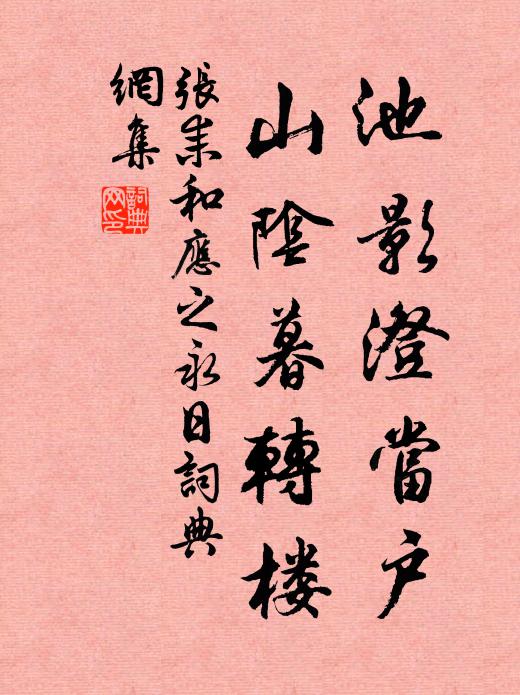 池影澄當户
山陰暮轉楼
張耒和應之永日詞典
網集
詞典網印